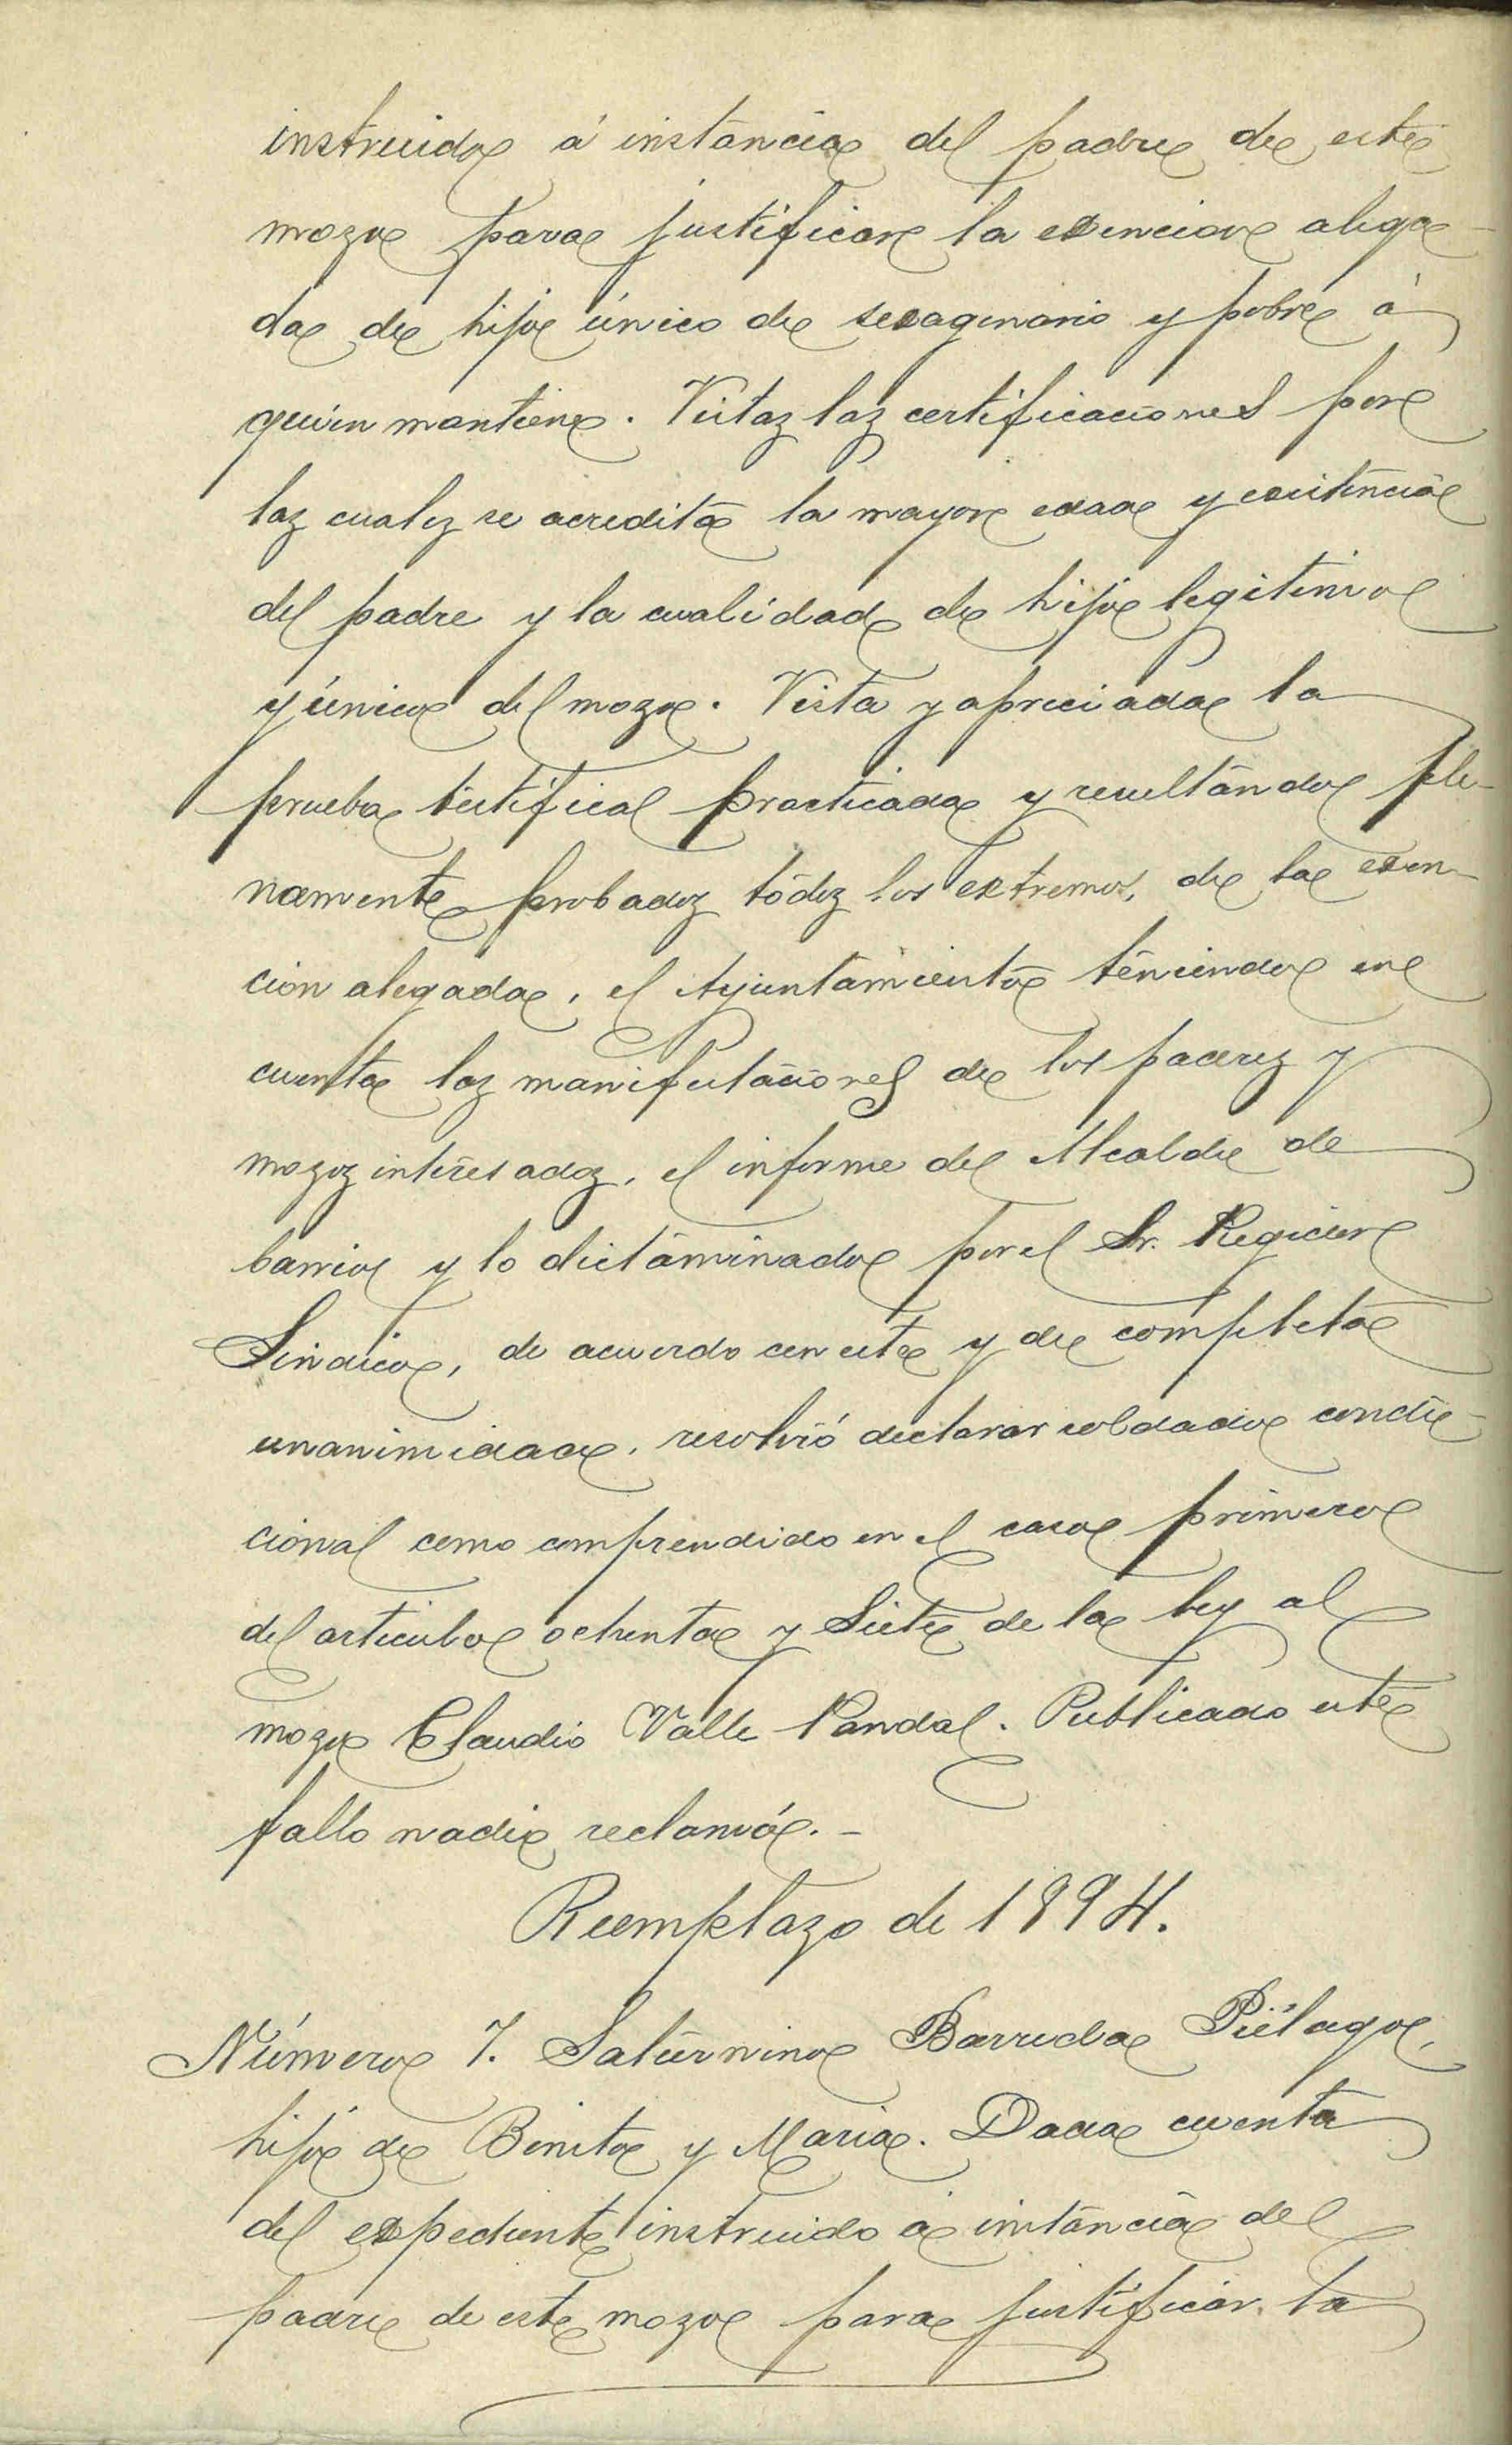 instruido á instancia del padre de este
mozo para justificar la exencion alega-
da de hijo único de sexagenario y pobre á
quien mantiene. Vistas las certificaciones por
las cuales se acredita la mayor edad y existencia
del padre y la cualidad de hijo legitimo
y único del mozo. Vista y apreciada la
prueba testifical practicada y resultando ple-
namente probados todos los extremos, de la exen-
cion alegada, el Ayuntamiento teniendo en
cuenta las manifestaciones de los padres y
mozos interesados, el informe del Alcalde de
barrio y lo dictaminado por el Sr. Regidor
Sindico, de acuerdo con este y de completa
unanimidad, resolvió declarar soldado condi-
cional como comprendido en el caso primero
del articulo ochenta y siete de la ley al
mozo Claudio Valle Pandal. Publicado este
fallo nadie reclamó. -
Reemplazo de 1894.
Número 7. Saturnino Barreda Piélago,
hijo de Benito y Maria. Dada cuenta
del expediente instruido á instancia del
padre de este mozo para justificar la